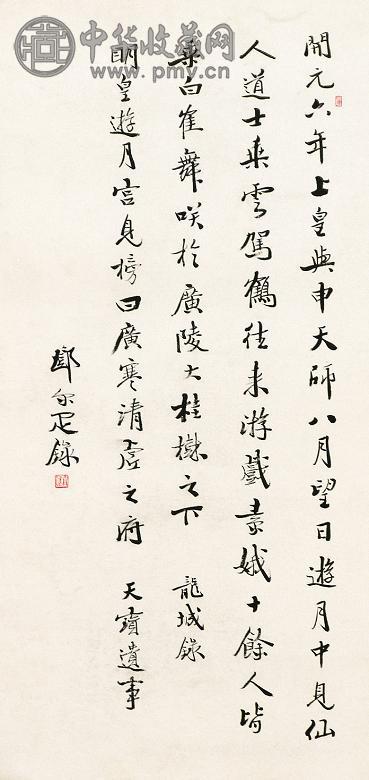 中华收藏网
www.pmy.cn
開元六年上皇與申天師八月望日遊月中見仙
人道士乘雲駕鶴往來游戲素娥十餘人皆
乘白隺舞咲於廣陵大桂樹之下 龍城錄
明皇遊月宮見榜曰廣寒清虛之府 天寶遺事
鄧尔疋錄